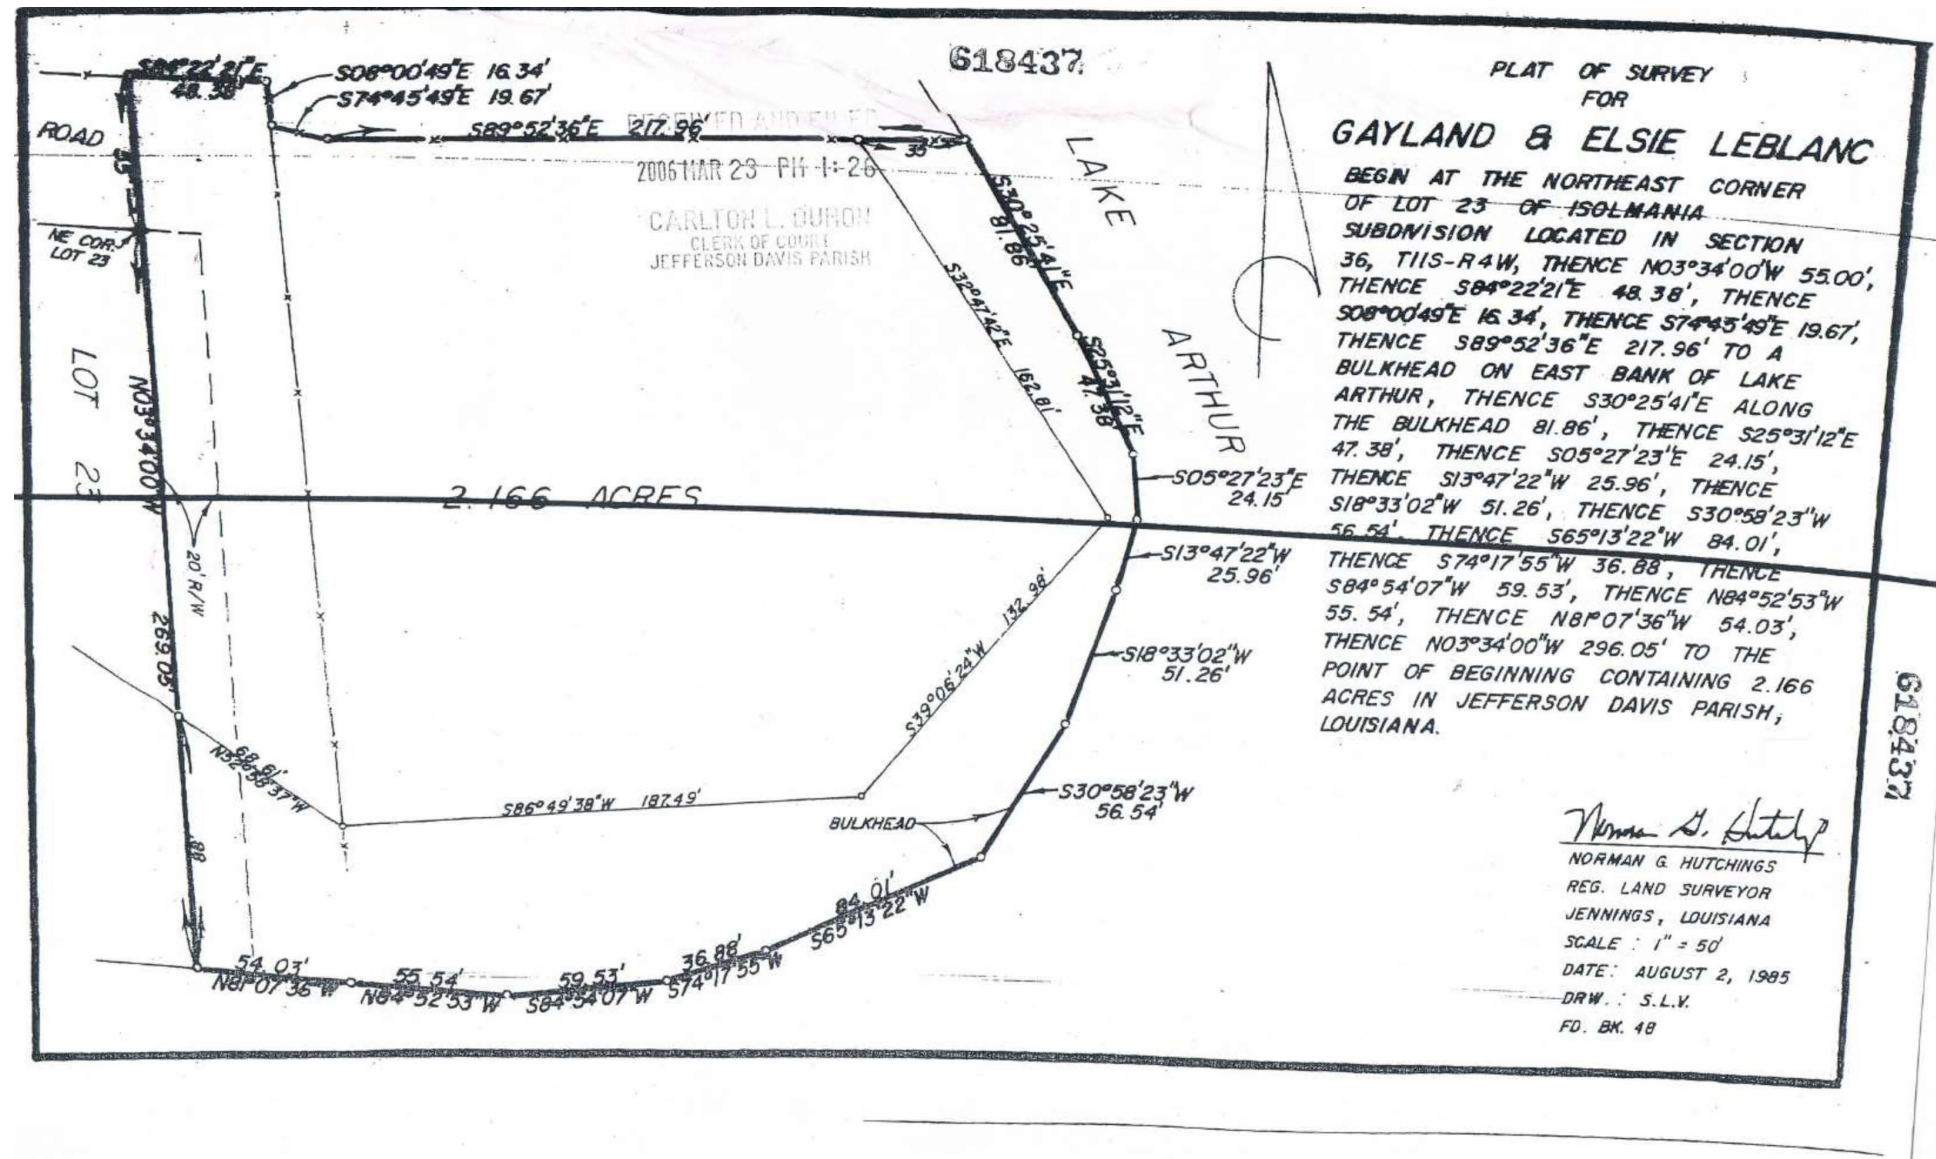 618437
PLAT OF SURVEY
FOR
GAYLAND & ELSIE LEBLANC
BEGIN AT THE NORTHEAST CORNER
OF LOT 23 OF ISOLMANIA
SUBDIVISION LOCATED IN SECTION
36, T11S-R4W, THENCE N03°34'00"W 55.00',
THENCE S84°22'21"E 48.38', THENCE
S08°00'49"E 16.34', THENCE S74°45'49"E 19.67',
THENCE S89°52'36"E 217.96' TO A
BULKHEAD ON EAST BANK OF LAKE
ARTHUR, THENCE S30°25'41"E ALONG
THE BULKHEAD 81.86', THENCE S25°31'12"E
47.38', THENCE S05°27'23"E 24.15',
THENCE S13°47'22"W 25.96', THENCE
S18°33'02"W 51.26', THENCE S30°58'23"W
56.54', THENCE S65°13'22"W 84.01',
THENCE S74°17'55"W 36.88', THENCE
S84°54'07"W 59.53', THENCE N84°52'53"W
55.54', THENCE N81°07'36"W 54.03',
THENCE N03°34'00"W 296.05' TO THE
POINT OF BEGINNING CONTAINING 2.166
ACRES IN JEFFERSON DAVIS PARISH,
LOUISIANA.
618437
NORMAN G. HUTCHINGS
REG. LAND SURVEYOR
JENNINGS, LOUISIANA
SCALE : 1" = 50'
DATE: AUGUST 2, 1985
DRW. : S.L.V.
FD. BK. 48
S84°22'21"E
48.38'
S08°00'49"E 16.34'
S74°45'49"E 19.67'
S89°52'36"E 217.96'
RECEIVED AND FILED
2006 MAR 23 PM 1:26
CARLTON L. DUHON
CLERK OF COURT
JEFFERSON DAVIS PARISH
ROAD
55'
NE COR.
LOT 23
LOT 23
N03°34'00"W
269.05'
20' R/W
2.166 ACRES
LAKE
ARTHUR
S30°25'41"E
81.86
S32°47'42"E 162.81'
S25°31'12"E
47.38'
S05°27'23"E
24.15'
S13°47'22"W
25.96'
S18°33'02"W
51.26'
S30°58'23"W
56.54'
S39°06'24"W 132.98'
S86°49'38"W 187.49'
BULKHEAD
68.61'
N52°58'37"W
88'
84.01'
S65°13'22"W
36.88'
S74°17'55"W
59.53'
S84°54'07"W
55.54'
N84°52'53"W
54.03'
N81°07'36"W